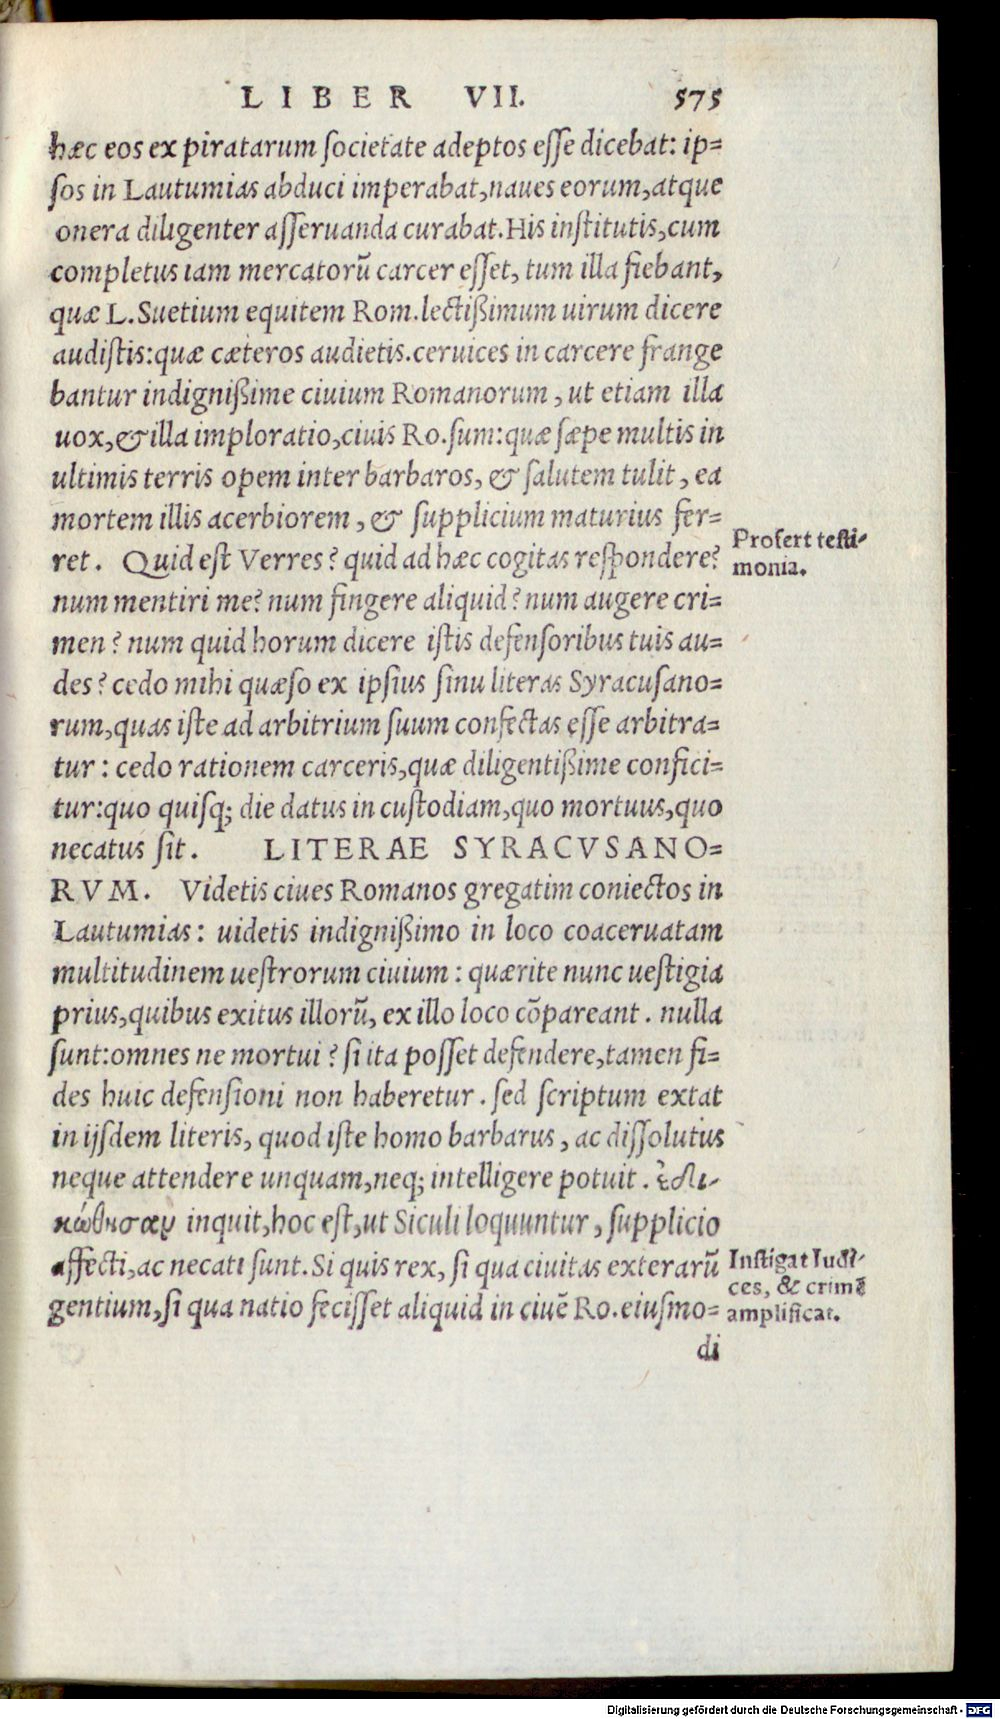 LIBER VII. 575
hæc eos ex piratarum societate adeptos esse dicebat: ip=
sos in Lautumias abduci imperabat, naues eorum, atque
onera diligenter asseruanda curabat. His institutis, cum
completus iam mercatorũ carcer esset, tum illa fiebant,
quæ L. Suetium equitem Rom. lectißimum uirum dicere
audistis: quæ cæteros audietis. ceruices in carcere frange
bantur indignißime ciuium Romanorum, ut etiam illa
uox, & illa imploratio, ciuis Ro. sum: quæ sæpe multis in
ultimis terris opem inter barbaros, & salutem tulit, ea
mortem illis acerbiorem, & supplicium maturius fer=
ret. Quid est Verres? quid ad hæc cogitas respondere?
Profert testi-
monia.
num mentiri me? num fingere aliquid? num augere cri=
men? num quid horum dicere istis defensoribus tuis au=
des? cedo mihi quæso ex ipsius sinu literas Syracusano=
rum, quas iste ad arbitrium suum confectas esse arbitra=
tur: cedo rationem carceris, quæ diligentißime confici=
tur: quo quisq; die datus in custodiam, quo mortuus, quo
necatus sit. LITERAE SYRACVSANO=
RVM. Videtis ciues Romanos gregatim coniectos in
Lautumias: uidetis indignißimo in loco coaceruatam
multitudinem uestrorum ciuium: quærite nunc uestigia
prius, quibus exitus illorũ, ex illo loco cõpareant. nulla
sunt: omnes ne mortui? si ita posset defendere, tamen fi=
des huic defensioni non haberetur. sed scriptum extat
in ijsdem literis, quod iste homo barbarus, ac dissolutus
neque attendere unquam, neq; intelligere potuit. ἐδι-
κώθησαν inquit, hoc est, ut Siculi loquuntur, supplicio
affecti, ac necati sunt. Si quis rex, si qua ciuitas exterarũ
gentium, si qua natio fecisset aliquid in ciuẽ Ro. eiusmo=
Instigat Iudi-
ces, & crimẽ
amplificat.
di
Digitalisierung gefördert durch die Deutsche Forschungsgemeinschaft - DFG